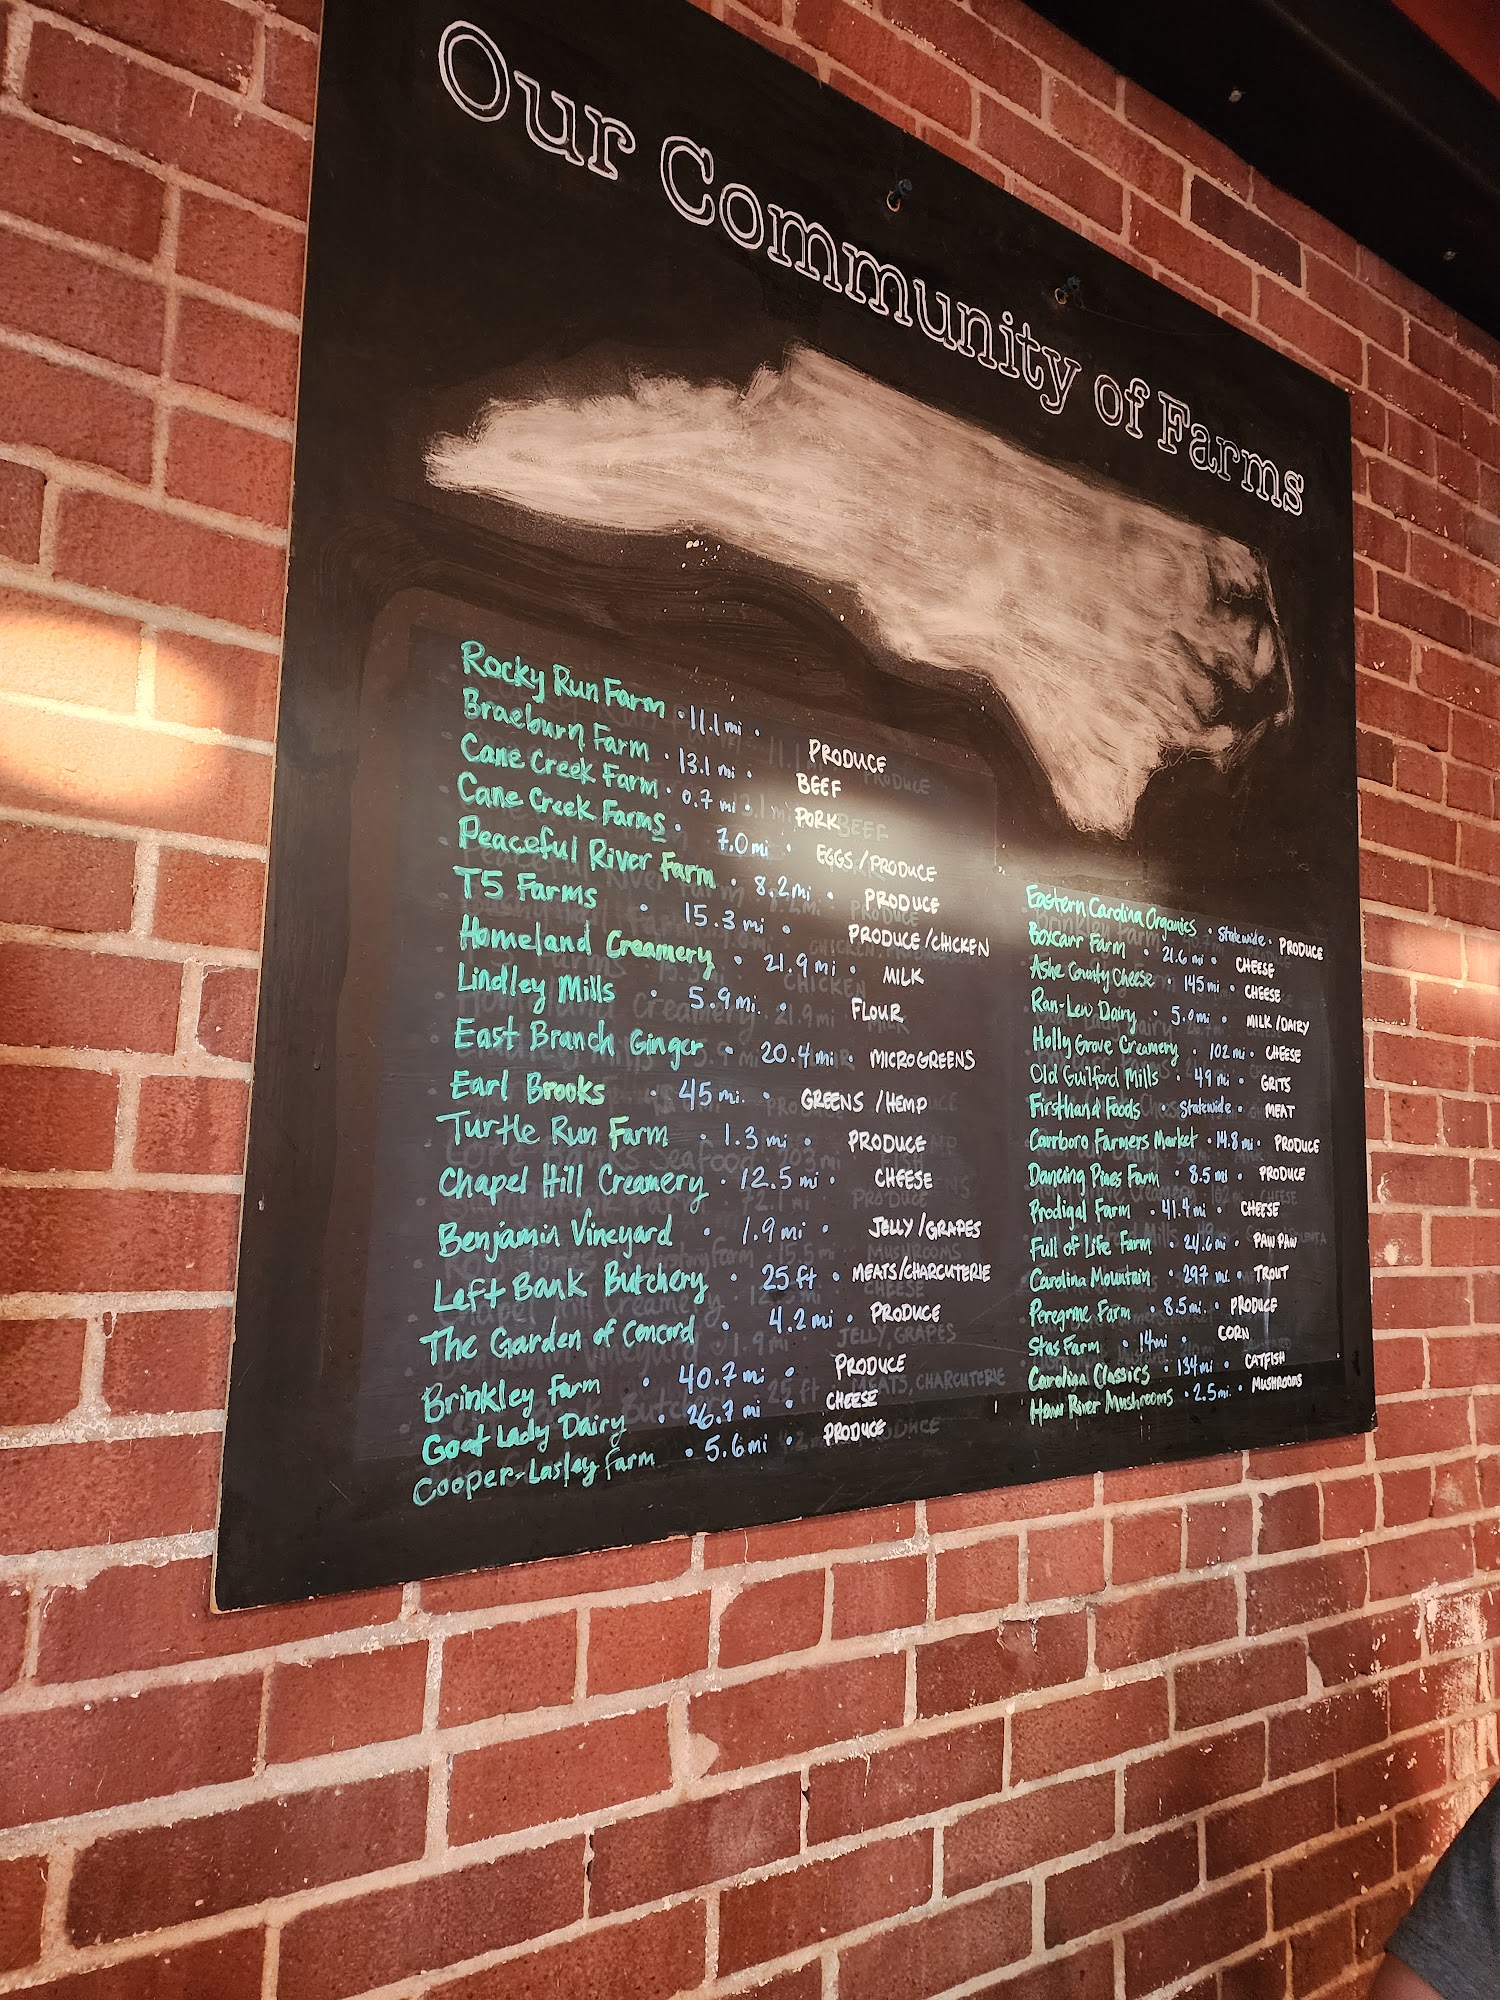 Our Community of Farms
Rocky Run Farm • 11.1 mi • PRODUCE
Braeburn Farm • 13.1 mi • BEEF
Cane Creek Farm • 0.7 mi • PORK
Cane Creek Farms • 7.0 mi • EGGS / PRODUCE
Peaceful River Farm • 8.2 mi • PRODUCE
T5 Farms • 15.3 mi • PRODUCE / CHICKEN
Homeland Creamery • 21.9 mi • MILK
Lindley Mills • 5.9 mi. • FLOUR
East Branch Ginger • 20.4 mi • MICROGREENS
Earl Brooks • 45 mi. • GREENS / HEMP
Turtle Run Farm • 1.3 mi • PRODUCE
Chapel Hill Creamery • 12.5 mi • CHEESE
Benjamin Vineyard • 1.9 mi • JELLY / GRAPES
Left Bank Butchery • 25 ft • MEATS/CHARCUTERIE
The Garden of Concord • 4.2 mi • PRODUCE
Brinkley Farm • 40.7 mi • PRODUCE
Goat Lady Dairy • 26.7 mi • CHEESE
Cooper-Lasley Farm • 5.6 mi • PRODUCE
Eastern Carolina Organics • Statewide • PRODUCE
Boxcarr Farm • 21.6 mi • CHEESE
Ashe County Cheese • 145 mi • CHEESE
Ran-Lew Dairy • 5.0 mi • MILK / DAIRY
Holly Grove Creamery • 102 mi • CHEESE
Old Guilford Mills • 49 mi • GRITS
Firsthand Foods • Statewide • MEAT
Carrboro Farmers Market • 14.8 mi • PRODUCE
Dancing Pines Farm • 8.5 mi • PRODUCE
Prodigal Farm • 41.4 mi • CHEESE
Full of Life Farm • 24.6 mi • PAW PAW
Carolina Mountain • 297 mi. • TROUT
Peregrine Farm • 8.5 mi. • PRODUCE
Stas Farm • 14 mi • CORN
Carolina Classics • 134 mi • CATFISH
Haw River Mushrooms • 2.5 mi. • MUSHROOMS